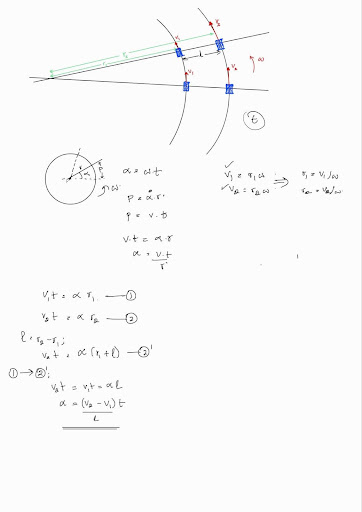 v₁ v₂
r₂
r₁
L
v₁ v₂ ω
t
r α P ω
α = ωt
P = α·r
P = v·t
v·t = α·r
α = v·t / r
v₁ = r₁ω
v₂ = r₂ω ⇒
r₁ = v₁/ω
r₂ = v₂/ω
v₁t = α r₁ — ①
v₂t = α r₂ — ②
l = r₂ - r₁;
v₂t = α(r₁ + l) — ②'
① → ②';
v₂t = v₁t = αl
α = (v₂ - v₁)t / L